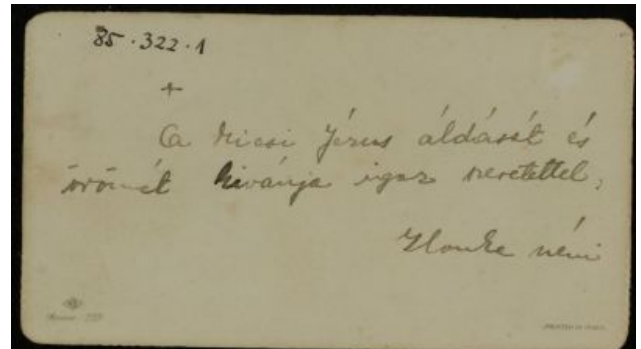 85.322.1
+
A kicsi Jézus áldását és
örömét kivánja igaz szeretettel,
Ilonka néni